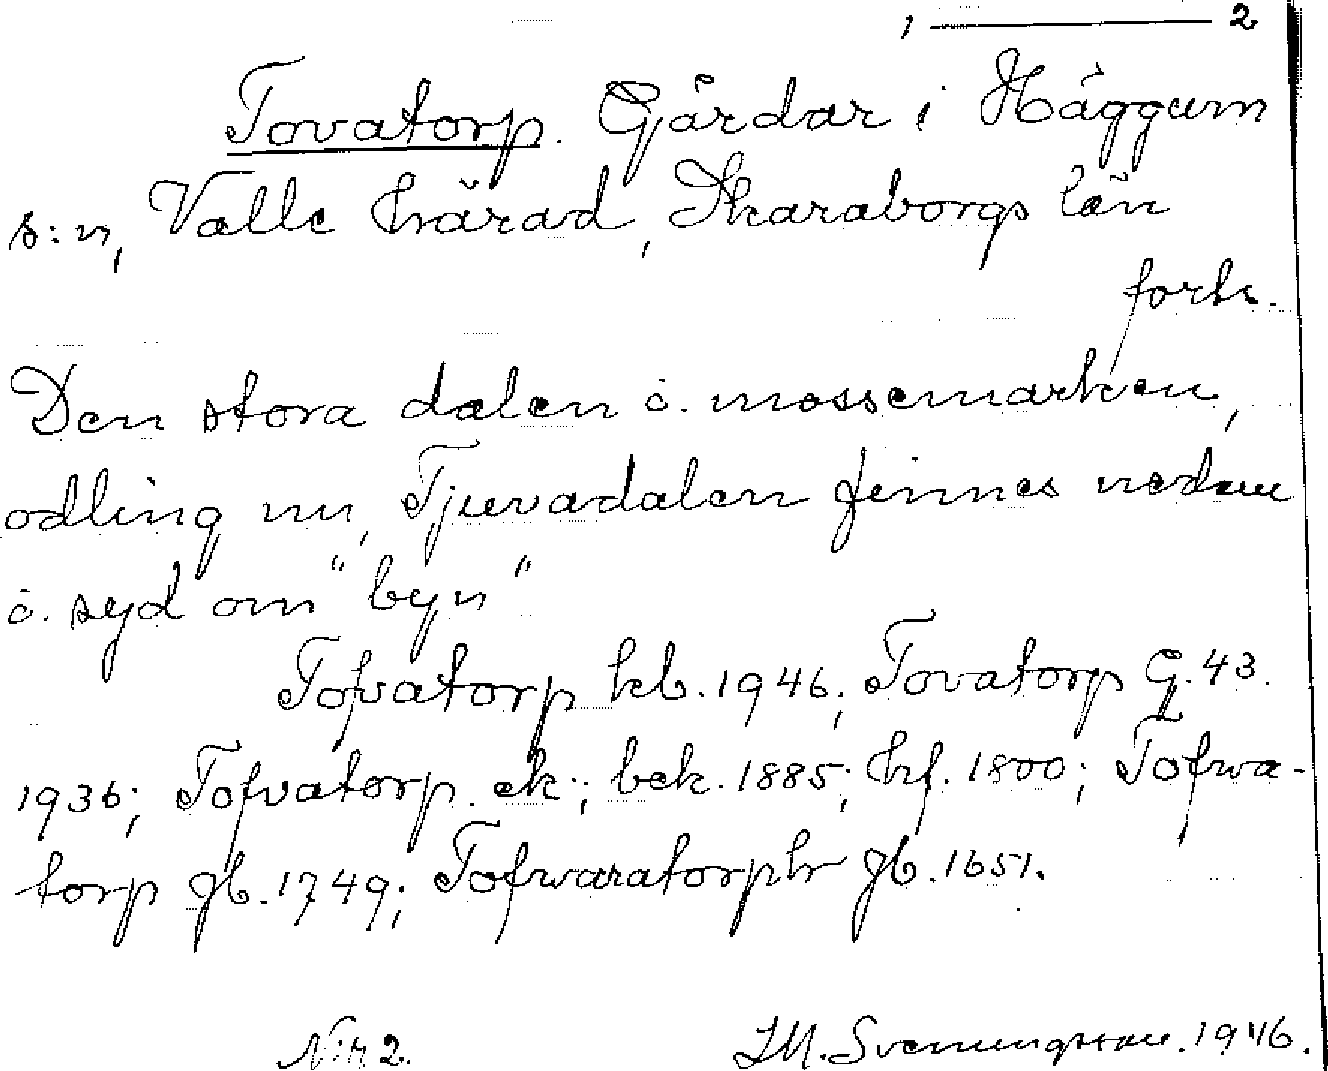 1 — 2
Tovatorp. Gårdar i Häggum
s:n, Valle härad, Skaraborgs län
forts.
Den stora dalen o. mossemarken,
odling nu, Tjuvadalen finnes nedan
o. syd om "byn"
Tofvatorp kb. 1946; Tovatorp G. 43.
1936; Tofvatorp. ek.; bek. 1885; hf. 1800; Tofwa-
torp jb. 1749; Tofwaratorph jb. 1651.
N:r 2. I.M. Svenungsson. 1946.